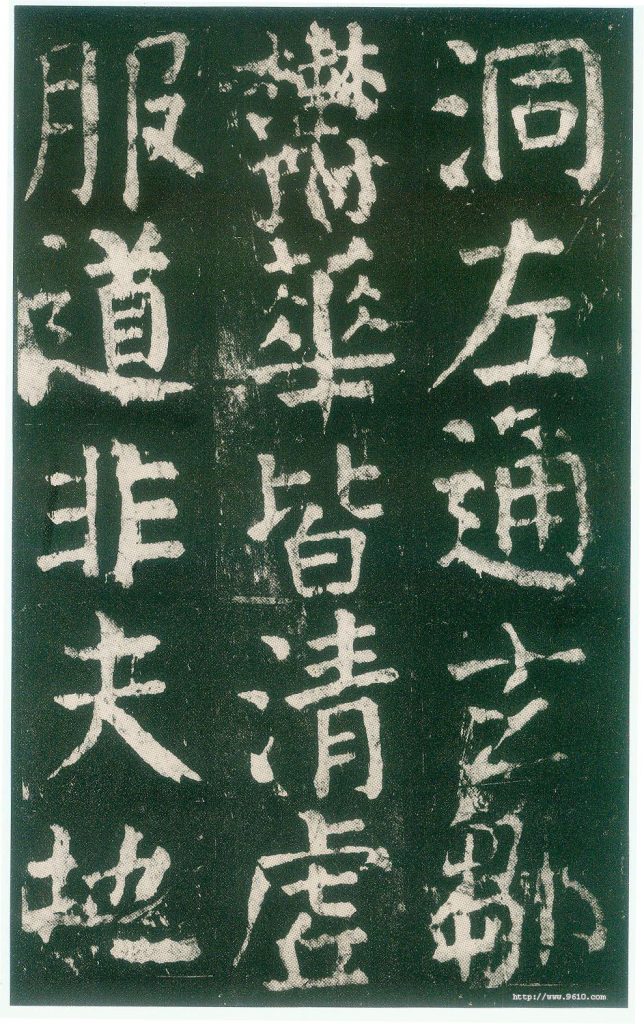 洞左通玄
華皆清虛
服道非夫地
http://www.9610.com